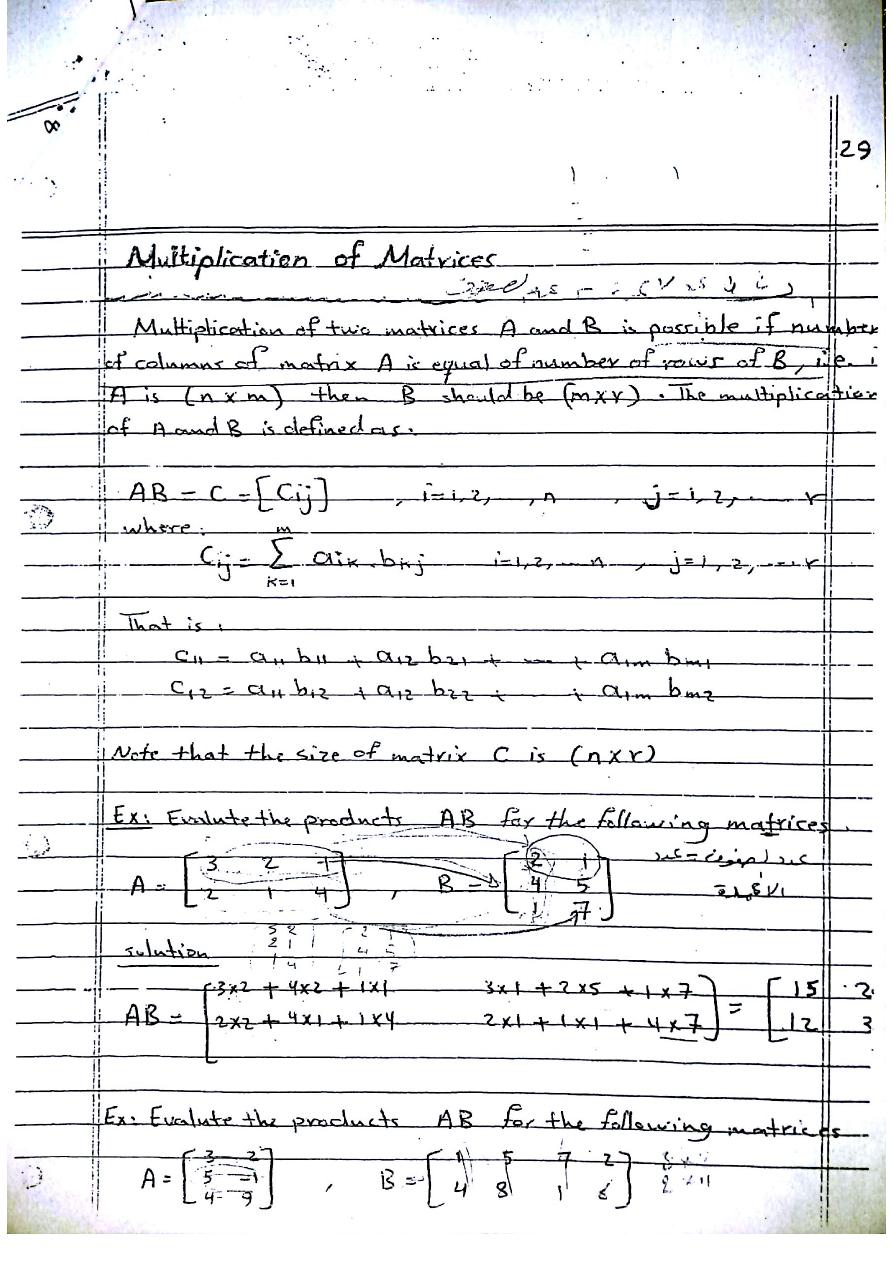 29
Multiplication of Matrices
Multiplication of two matrices A and B is possible if number
of columns of matrix A is equal of number of rows of B, i.e. i
A is (n x m) then B should be (m x r). The multiplication
of A and B is defined as.
AB = C = [Cij] , i=1,2, , n , j=1,2,.... r
where:
Cij = m∑k=1 aik.bkj i=1,2,...n , j=1,2,....r
That is:
C11 = a11 b11 + a12 b21 + .... + a1m bm1
C12 = a11 b12 + a12 b22 + .... + a1m bm2
Note that the size of matrix C is (n x r)
Ex: Evalute the products AB for the following matrices.
A = [3 2 1; 2 1 4] , B = [2 1; 4 5; 1 7]
solution
AB = [3x2 + 4x2 + 1x1 3x1 + 2x5 + 1x7; 2x2 + 4x1 + 1x4 2x1 + 1x1 + 4x7] = [15 2; 12 3
Ex: Evalute the products AB for the following matrices
A = [3 2; 5 -1; 4 9] , B = [1 5 7 2; 4 8 1 6]